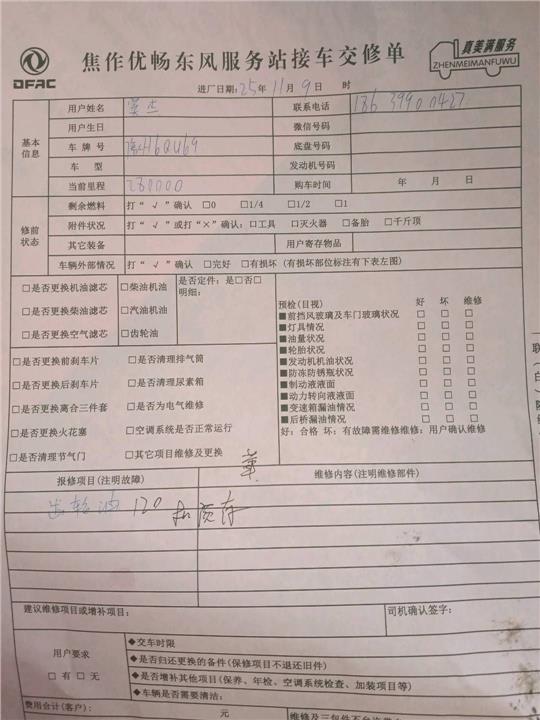 DFAC
焦作优畅东风服务站接车交修单
真美满服务
ZHENMEIMANFUWU
进厂日期：25年 11月 9日 时
基本信息
用户姓名
联系电话
用户生日
微信号码
车牌号 豫H6QU69
底盘号码
车型
发动机号码
当前里程 280000
购车时间 年 月 日
修前状态
剩余燃料 打“√”确认 □0 □1/4 □1/2 □1
附件状况 打“√”或打“×”确认：□工具 □灭火器 □备胎 □千斤顶
其它装备
用户寄存物品
车辆外部情况 打“√”确认 □完好 □有损坏（有损坏部位标注有下表左图）
□是否更换机油滤芯
□是否更换柴油滤芯
□是否更换空气滤芯
□柴油机油
□汽油机油
□齿轮油
是否定件：是□否□
明细：
□是否更换前刹车片 □是否清理排气筒
□是否更换后刹车片 □是否清理尿素箱
□是否更换离合三件套 □是否为电气维修
□是否更换火花塞 □空调系统是否正常运行
□是否清理节气门 □其它项目维修及更换
预检(目视) 好 坏 维修
■前挡风玻璃及车门玻璃状况 □ □ □
■灯具情况 □ □ □
■油量状况 □ □ □
■轮胎状况 □ □ □
■发动机机油状况 □ □ □
■防冻防锈瓶状况 □ □ □
■制动液液面 □ □ □
■动力转向液液面 □ □ □
■变速箱漏油情况 □ □ □
■后桥漏油情况 □ □ □
好：合格 坏：有故障需维修维修：用户确认维修
报修项目（注明故障）
维修内容（注明维修部件）
齿轮油 120 扣预存
建议维修项目或增补项目：
司机确认签字：
用户要求
□有 □无
◆交车时限
◆是否归还更换的备件（保修项目不退还旧件）
◆是否增补其他项目（保养、年检、空调系统检查、加装项目等）
◆车辆是否需要清洁：
费用合计(客户)： 元